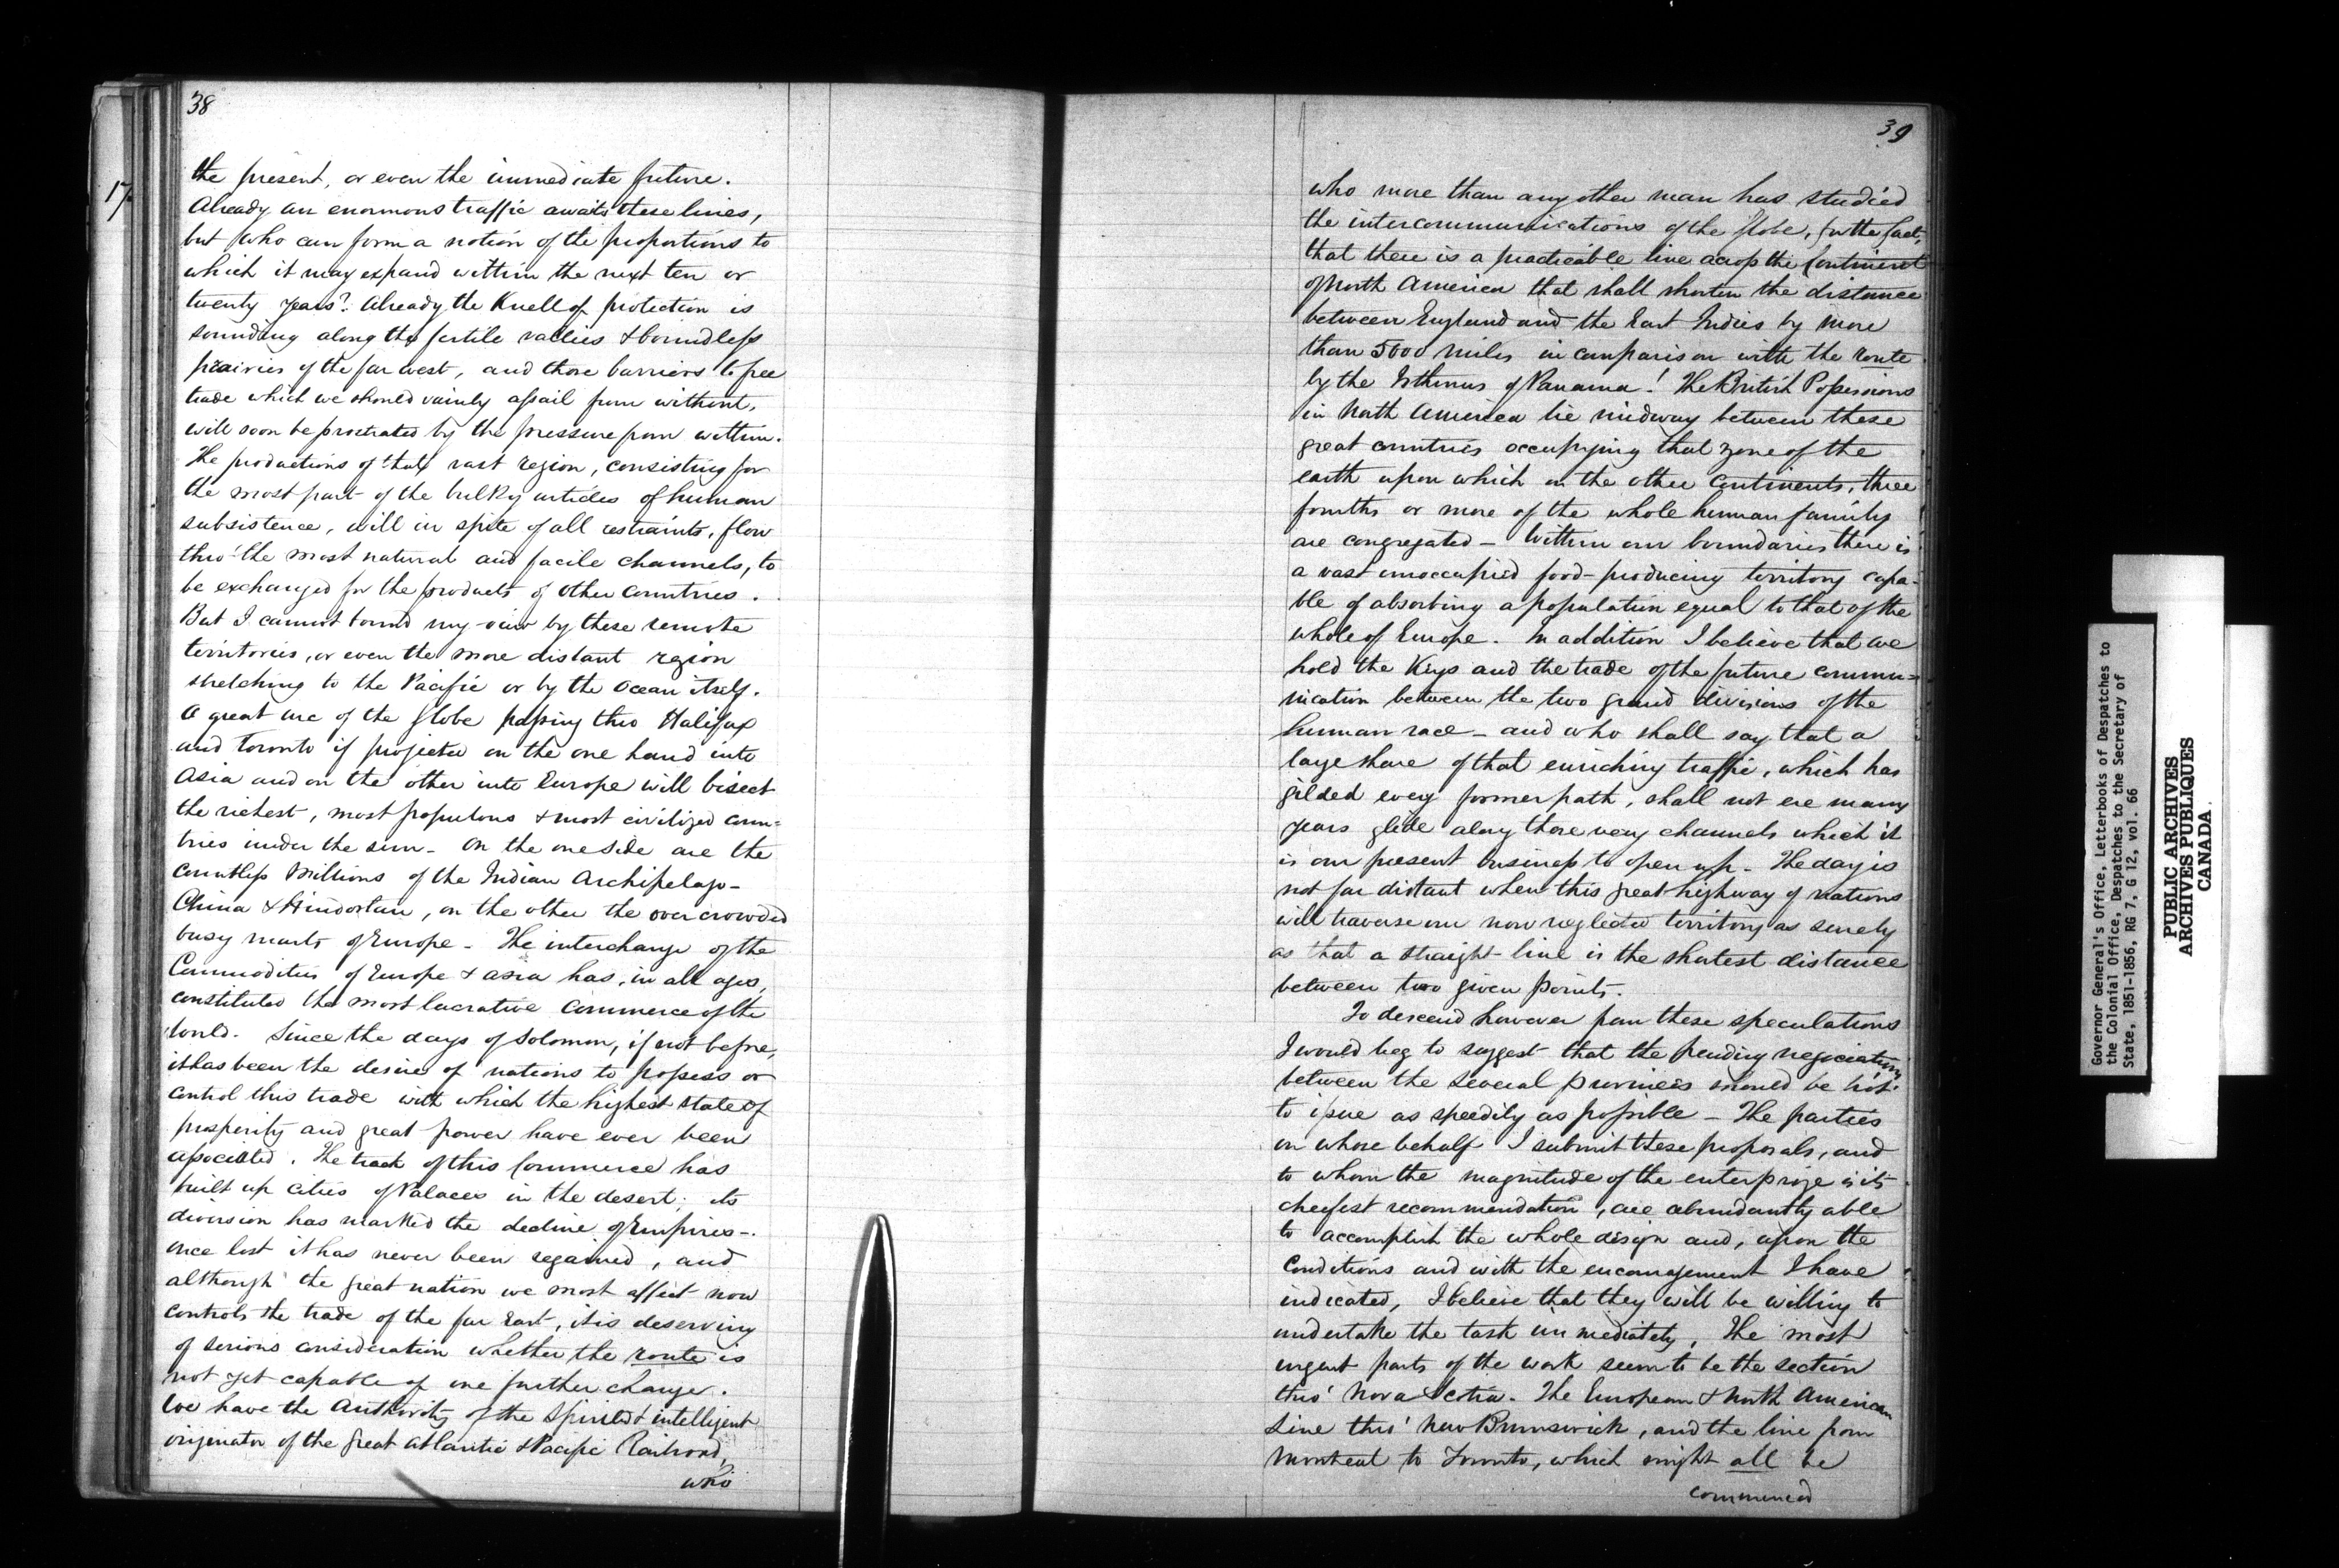 38
17
the present, or even the immediate future.
Already an enormous traffic awaits these lines,
but who can form a notion of the proportions to
which it may expand within the next ten or
twenty years? Already the Knell of protection is
sounding along the fertile vallies & boundless
prairies of the far west, and those barriers to free
trade which we should vainly assail from without,
will soon be prostrated by the pressure from within.
The productions of that vast region, consisting for
the most part of the bulky articles of human
subsistence, will in spite of all restraints, flow
thro' the most natural and facile channels, to
be exchanged for the products of other countries.
But I cannot bound my view by these remote
territories, or even the more distant region
stretching to the Pacific or by the Ocean itself.
A great arc of the globe passing thro Halifax
and Toronto if projected on the one hand into
Asia and on the other into Europe will bisect
the richest, most populous & most civilized coun=
tries under the sun - On the one side are the
countless Millions of the Indian Archipelago -
China & Hindostan, on the other the overcrowded
busy marts of Europe - The interchange of the
Commodities of Europe & Asia has, in all ages,
constituted the most lucrative commerce of the
World. Since the days of Solomon, if not before,
it has been the desire of nations to possess or
control this trade with which the highest state of
prosperity and great power have ever been
associated. The track of this Commerce has
built up cities of Palaces in the desert; its
diversion has marked the decline of Empires -
once lost it has never been regained, and
although the great nation we most affect now
controls the trade of the far East, it is deserving
of serious consideration whether the route is
not yet capable of one further change.
We have the Authority of the spirited & intelligent
originator of the great Atlantic & Pacific Railroad,
who
39
who more than any other man has studied
the intercommunications of the globe, for the fact,
that there is a practicable line across the Continent
of North America that shall shorten the distance
between England and the East Indies by more
than 5000 miles in comparison with the route
by the Isthmus of Panama! The British Possessions
in North America lie midway between these
great countries occupying that zone of the
earth upon which on the other Continents, three
fourths or more of the whole human family
are congregated - Within our boundaries there is
a vast unoccupied food-producing territory capa-
ble of absorbing a population equal to that of the
whole of Europe. In addition I believe that we
hold the Keys and the trade of the future commu=
nication between the two grand divisions of the
human race - and who shall say that a
large share of that enriching traffic, which has
gilded every former path, shall not ere many
years glide along those very channels which it
is our present business to open up - The day is
not far distant when this great highway of nations
will traverse our now neglected territory as surely
as that a straight-line is the shortest distance
between two given points.
To descend however from these speculations
I would beg to suggest that the pending negociations
between the several provinces should be bro't
to issue as speedily as possible - The parties
on whose behalf I submit these proposals, and
to whom the magnitude of the enterprize is its
cheefest recommendation, are abundantly able
to accomplish the whole design and, upon the
Conditions and with the encouragement I have
indicated, I believe that they will be willing to
undertake the task immediately. The most
urgent parts of the work seem to be the section
thro' Nova Scotia - The European & North American
Line thro' New Brunswick, and the line from
Montreal to Toronto, which might all be
commenced
Governor General's Office, Letterbooks of Despatches to
the Colonial Office, Despatches to the Secretary of
State, 1851-1856, RG 7, G 12, vol. 66
PUBLIC ARCHIVES
ARCHIVES PUBLIQUES
CANADA